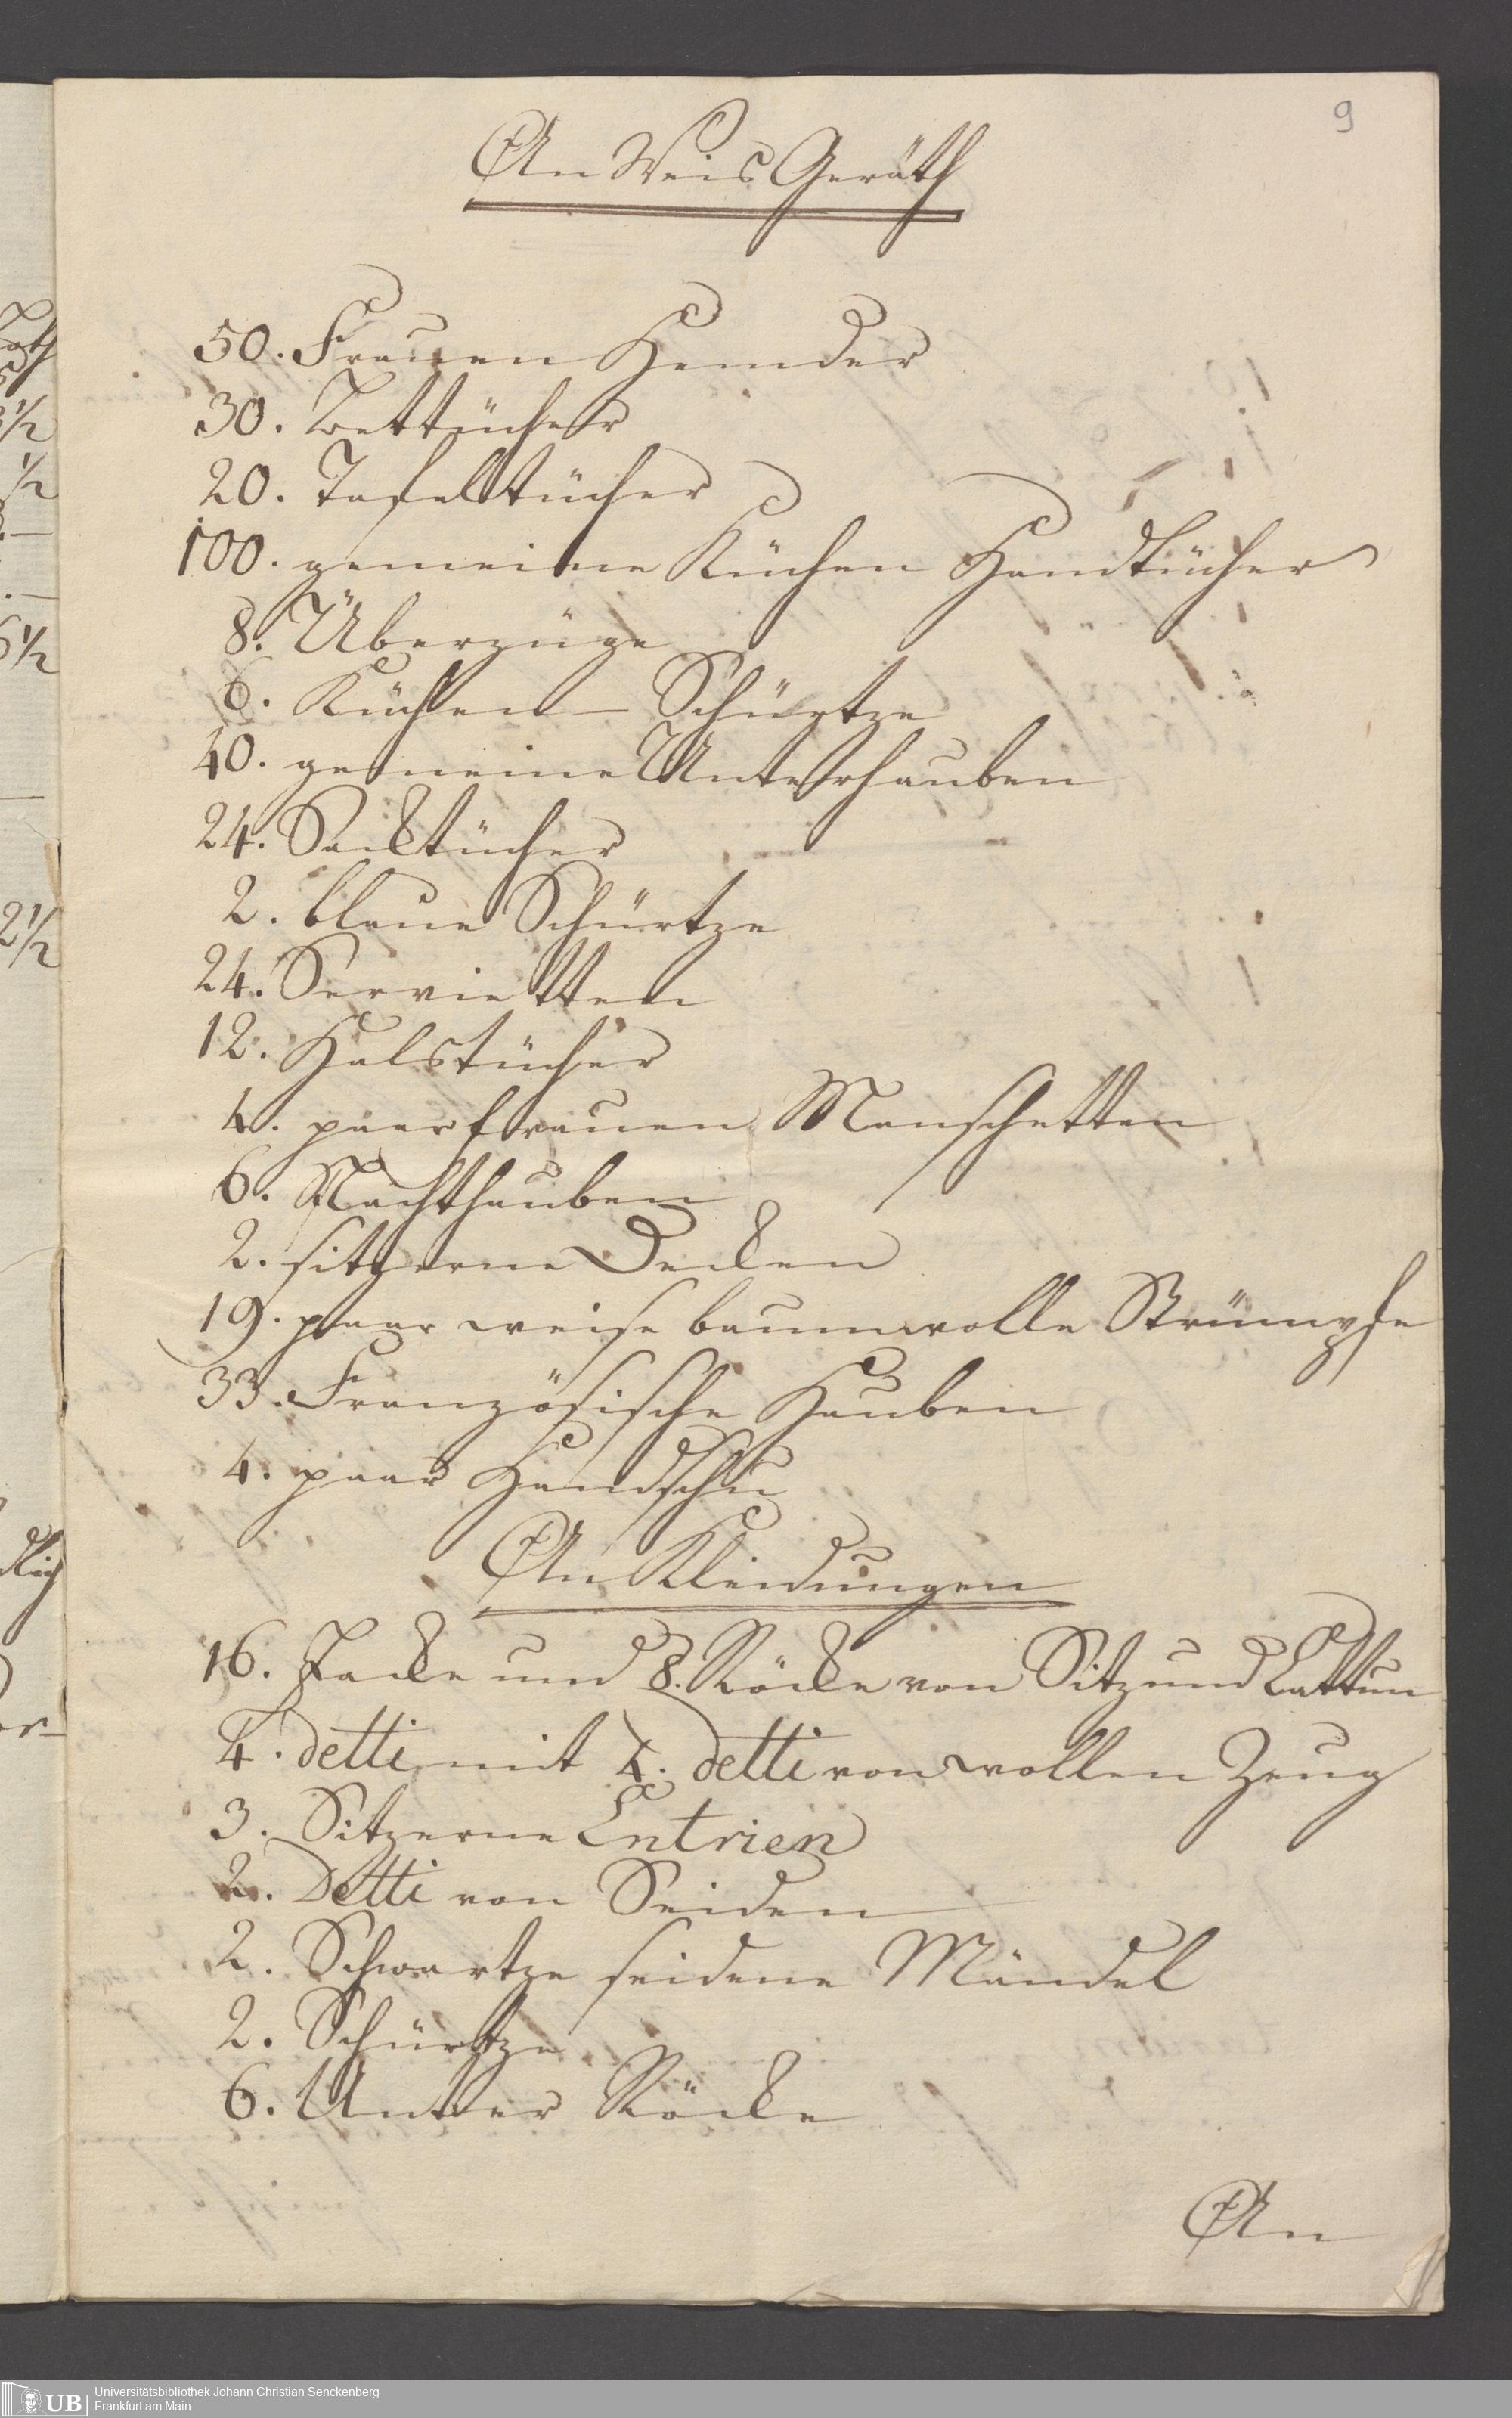 9
An Weis Geräth
50. Frauen Hemder
30. Bettücher
20. Tafelltücher
100. gemeine Küchen Handtücher
8. Überzüge
6. Küchen-Schürtze
40. gemeine Unterhauben
24. Sacktücher
2. blaue Schürtze
24. Servietten
12. Halstücher
4. paar frauen Manschetten
6. Nachthauben
2. sitzerne Decken
19. paar weise baumwolle Strümpfe
33. Französische Hauben
4. paar Handschu
An Kleidungen
16. Jacke und 8. Röcke von Sitz und Cattun
4. detti mit 4. detti von wollen Zeug
3. Sitzerne Entrien
2. Detti von Seiden
2. Schwartze seidene Mändel
2. Schürtze
6. Unter Röcke
An
UB
Universitätsbibliothek Johann Christian Senckenberg
Frankfurt am Main